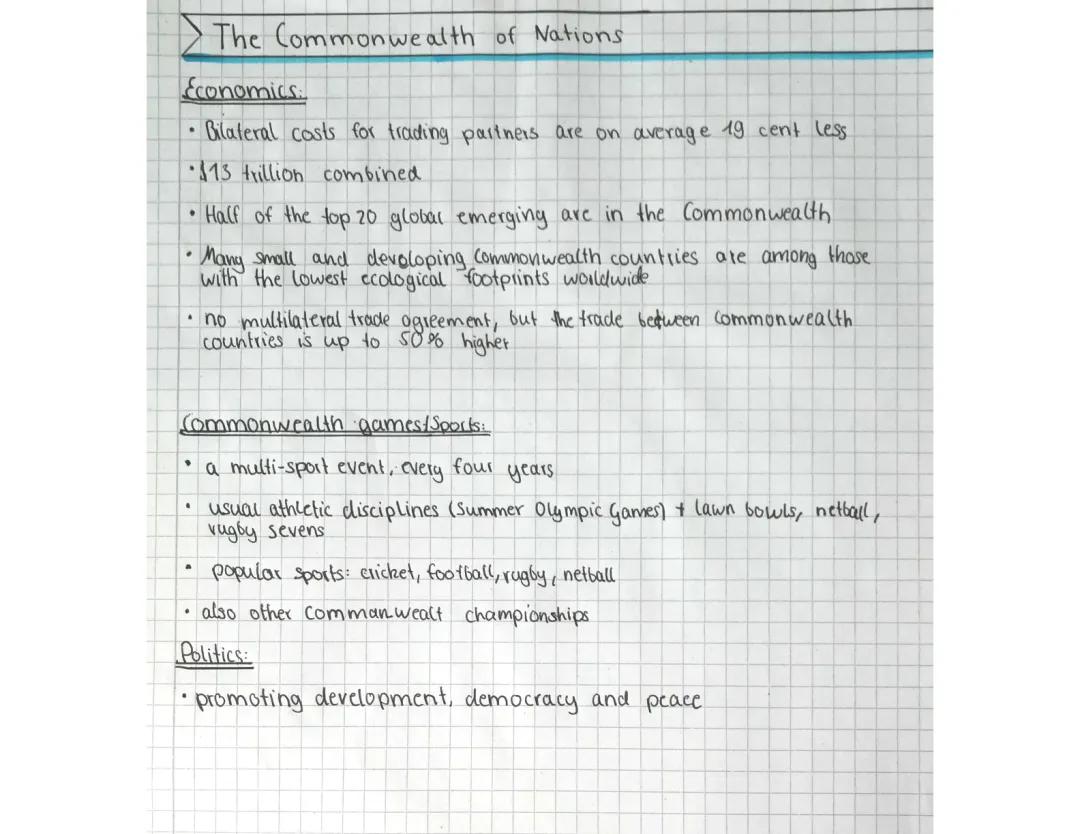 The Commonwealth of Nations
Economics:
• Bilateral costs for trading partners are on average 19 cent less
• $13 trillion combined
• Half of the top 20 global emerging are in the Commonwealth
• Many small and devoloping Commonwealth countries are among those
with the lowest ecological footprints worldwide
• no multilateral trade agreement, but the trade between commonwealth
countries is up to 50% higher
Commonwealth games/Sports:
• a multi-sport event, every four years
• usual athletic disciplines (Summer Olympic Games) + lawn bowls, netball,
rugby sevens
• popular sports: cricket, football, rugby, netball
• also other commanwealt championships
Politics:
• promoting development, democracy and peace